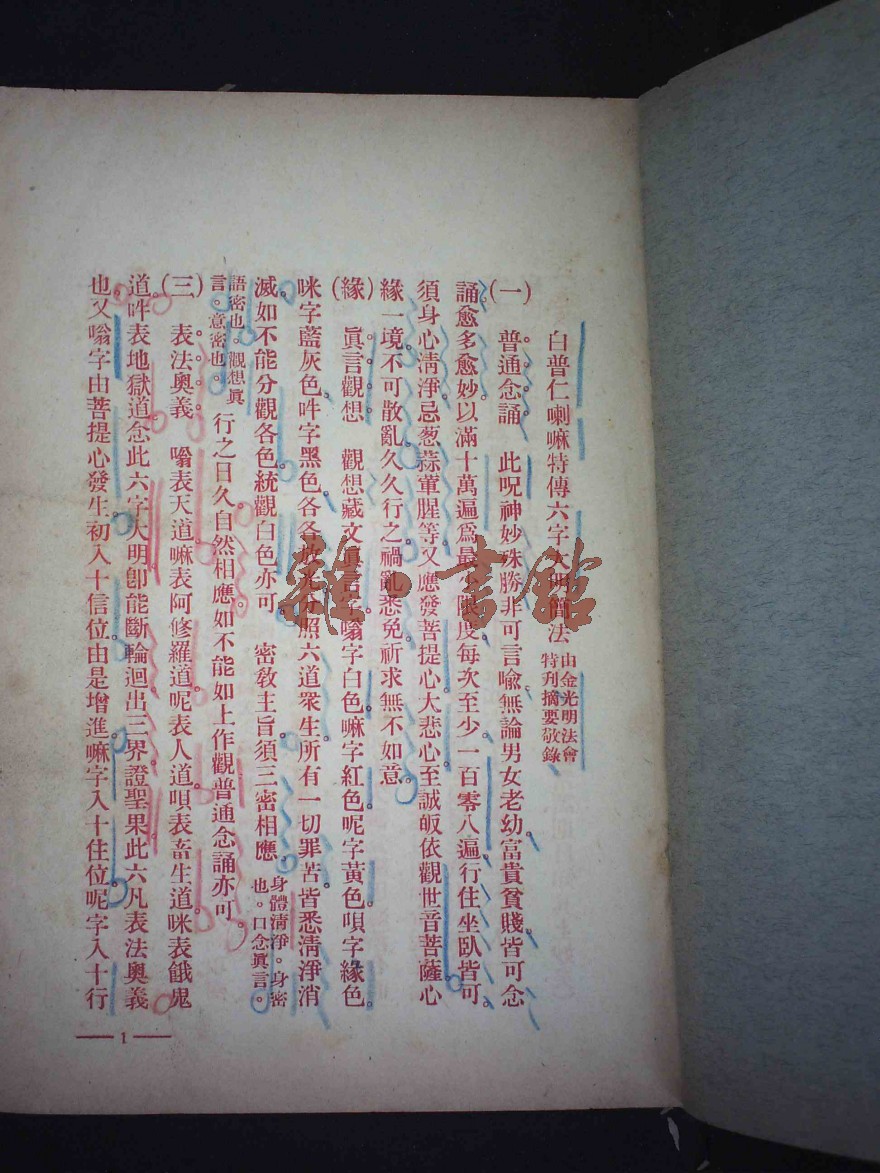 白普仁喇嘛特傳六字大明簡法 由金光明法會
特刋摘要敬錄
(一) 普通念誦 此呪神妙殊勝非可言喩無論男女老幼富貴貧賤皆可念
誦。愈多愈妙以滿十萬遍爲最少限度。每次至少一百零八遍。行住坐臥皆可。
須身心淸淨。忌葱蒜葷腥等。又應發菩提心大悲心。至誠皈依觀世音菩薩。心
緣一境不可散亂。久久行之。禍亂悉免。祈求無不如意。
(緣) 眞言觀想 觀想藏文眞言字。嗡字白色。嘛字紅色。呢字黃色。唄字緣色。
咪字藍灰色。吽字黑色。各各放光。照六道衆生。所有一切罪苦。皆悉淸淨消
滅。如不能分觀各色。統觀白色亦可。 密敎主旨須三密相應。身體淸淨。身密
也。口念眞言。
語密也。觀想眞
言。意密也。 行之日久自然相應。如不能如上作觀。普通念誦亦可。
(三) 表法奧義 嗡表天道。嘛表阿修羅道。呢表人道。唄表畜生道。咪表餓鬼
道。吽表地獄道。念此六字大明卽能斷輪迴。出三界證聖果。此六凡表法奧義
也。又嗡字由菩提心發生。初入十信位。由是增進。嘛字入十住位。呢字入十行
1
雜·書館